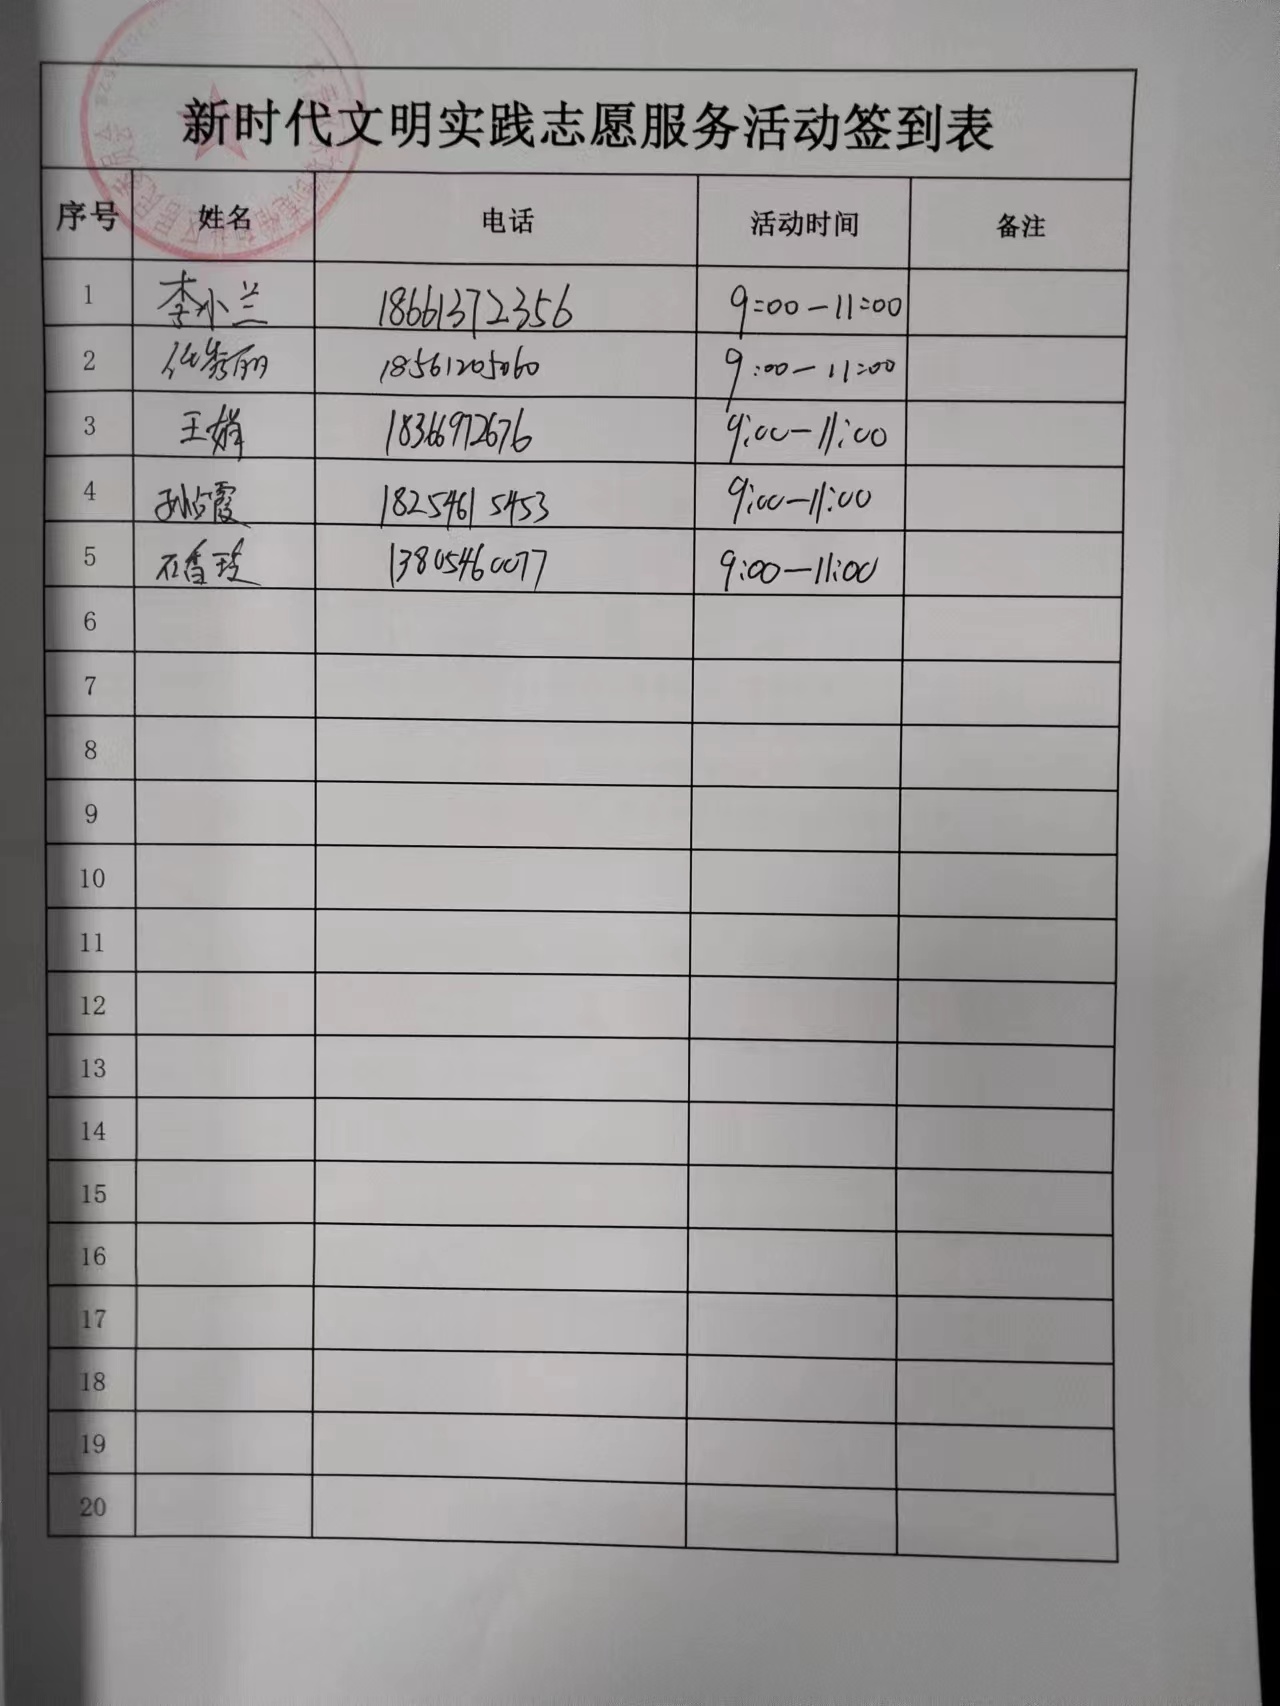 新时代文明实践志愿服务活动签到表
序号 姓名 电话 活动时间 备注
1 李小兰 18661372356 9:00-11:00
2 代秀丽 18561205060 9:00-11:00
3 王娟 18366972676 9:00-11:00
4 孙占霞 18254615453 9:00-11:00
5 石香玲 13805460077 9:00-11:00
6
7
8
9
10
11
12
13
14
15
16
17
18
19
20